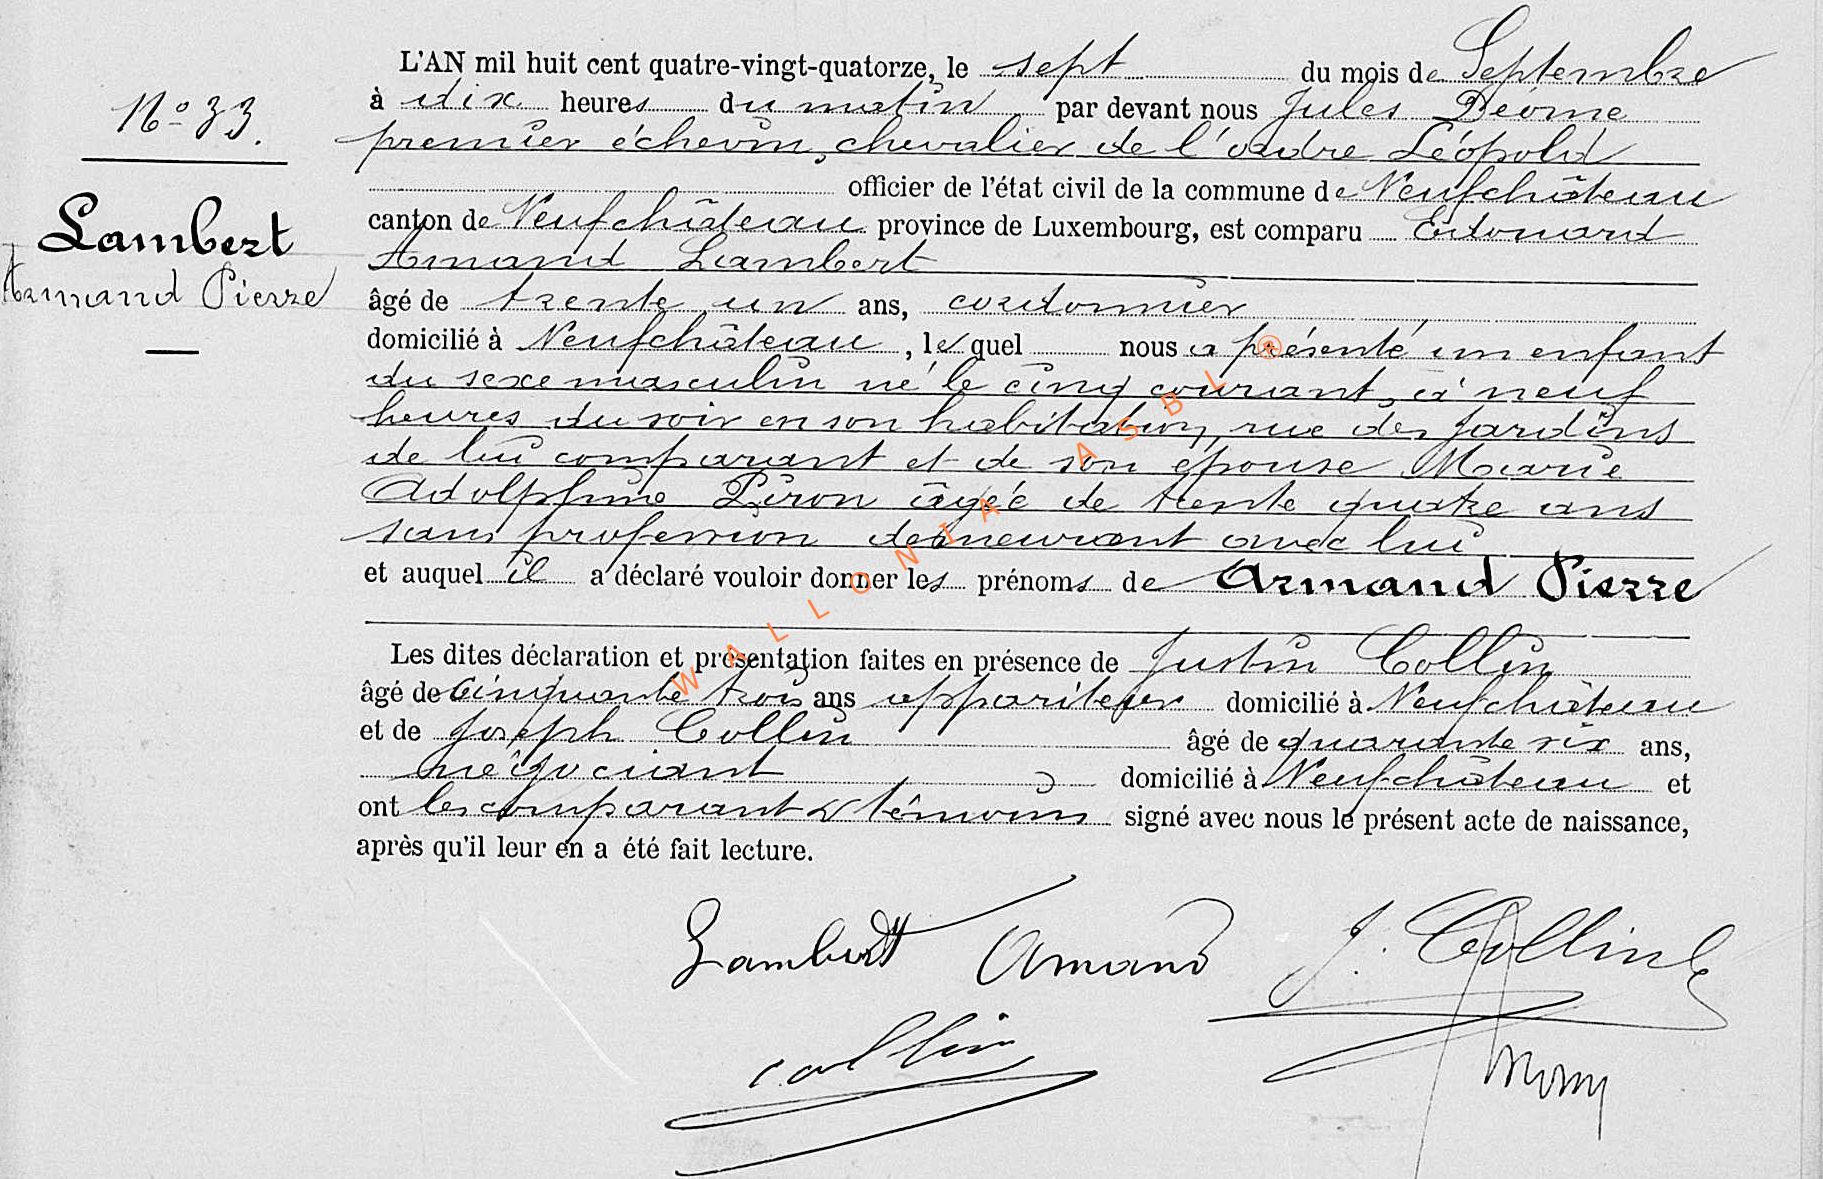 N° 33.
Lambert
Armand Pierre
L'AN mil huit cent quatre-vingt-quatorze, le sept du mois de Septembre
à dix heures du matin par devant nous Jules
premier échevin, chevalier de l'ordre Léopold
officier de l'état civil de la commune de Neufchâteau
canton de Neufchâteau province de Luxembourg, est comparu Edouard
Armand Lambert
âgé de trente un ans, cordonnier
domicilié à Neufchâteau, lequel nous a présenté un enfant
du sexe masculin né le cinq courant, à neuf
heures du soir en son habitation, rue des Jardins
de lui comparant et de son épouse Marie
Adolphine Piron âgée de trente quatre ans
sans profession demeurant avec lui
et auquel il a déclaré vouloir donner les prénoms de Armand Pierre
Les dites déclaration et présentation faites en présence de Justin Collin
âgé de cinquante trois ans appariteur domicilié à Neufchâteau
et de Joseph Collin âgé de quarante six ans,
négociant domicilié à Neufchâteau et
ont les comparant & témoins signé avec nous le présent acte de naissance,
après qu'il leur en a été fait lecture.
Lambert Armand J. Collin
Collin
WALLONIA ASBL ®